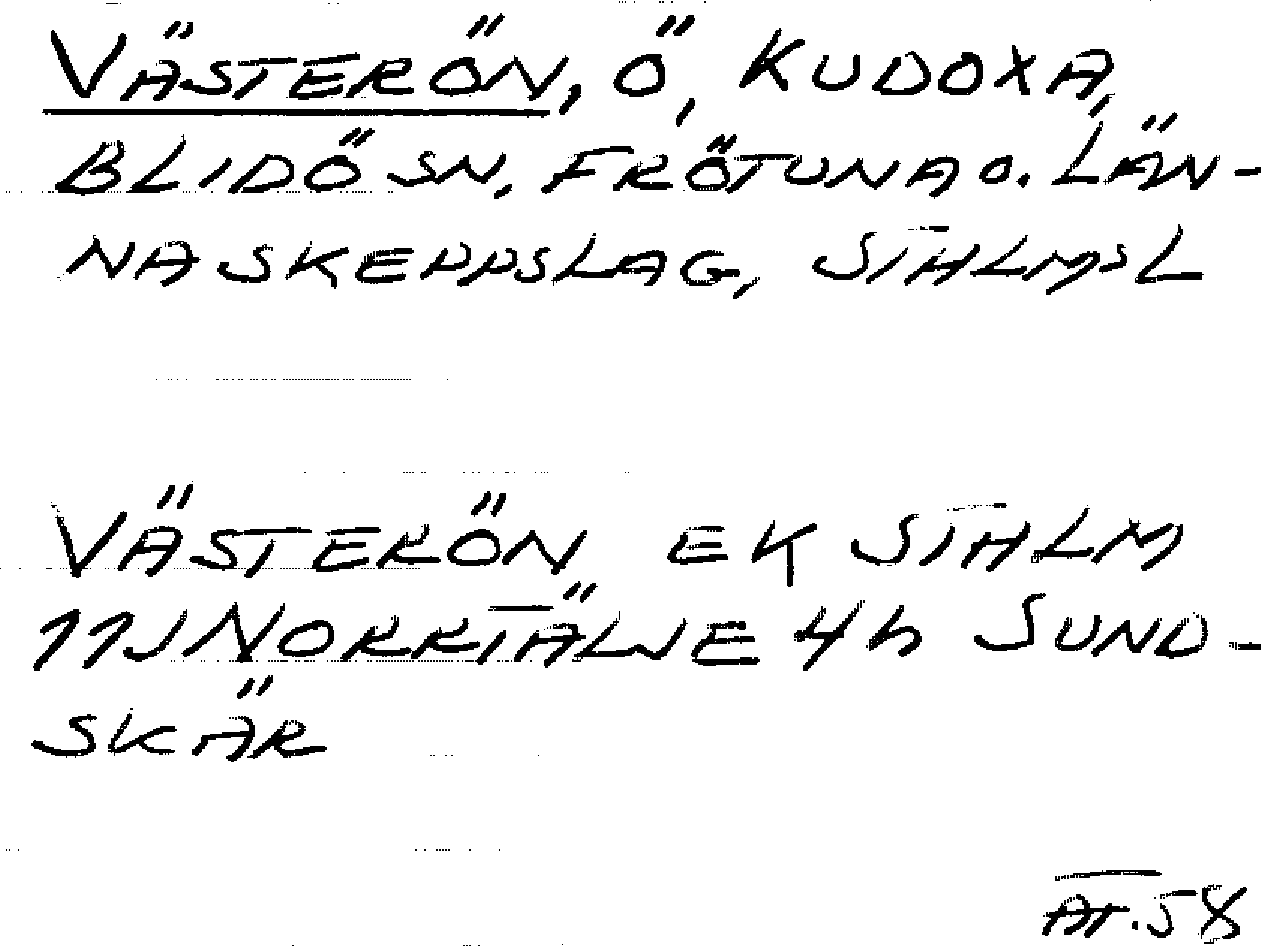 VÄSTERÖN, Ö, KUDOXA,
BLIDÖ SN, FRÖTUNA O. LÄN-
NA SKEPPSLAG, STHLMSL
VÄSTERÖN EK STHLM
11J NORRTÄLJE 4h SUND-
SKÄR
AT.58